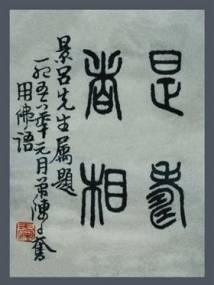 是壽
者相
景呂先生屬題
一九五六年元月弟陳子奮
用佛語